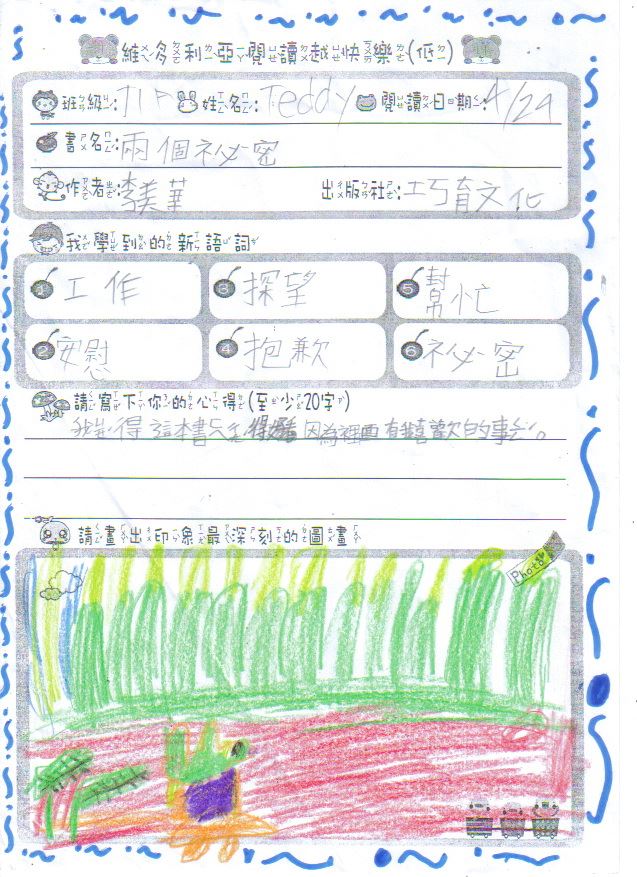 維多利亞閱讀越快樂(低)
班級: 姓名: Teddy 閱讀日期: 4/24
書名: 兩個祕密
作者: 李美華 出版社: 巧育文化
我學到的新語詞
1 工作 3 探望 5 幫忙
2 安慰 4 抱歉 6 祕密
請寫下你的心得(至少20字)
我覺得這本書 因為裡面有我喜歡的事。
請畫出印象最深刻的圖畫
Photo